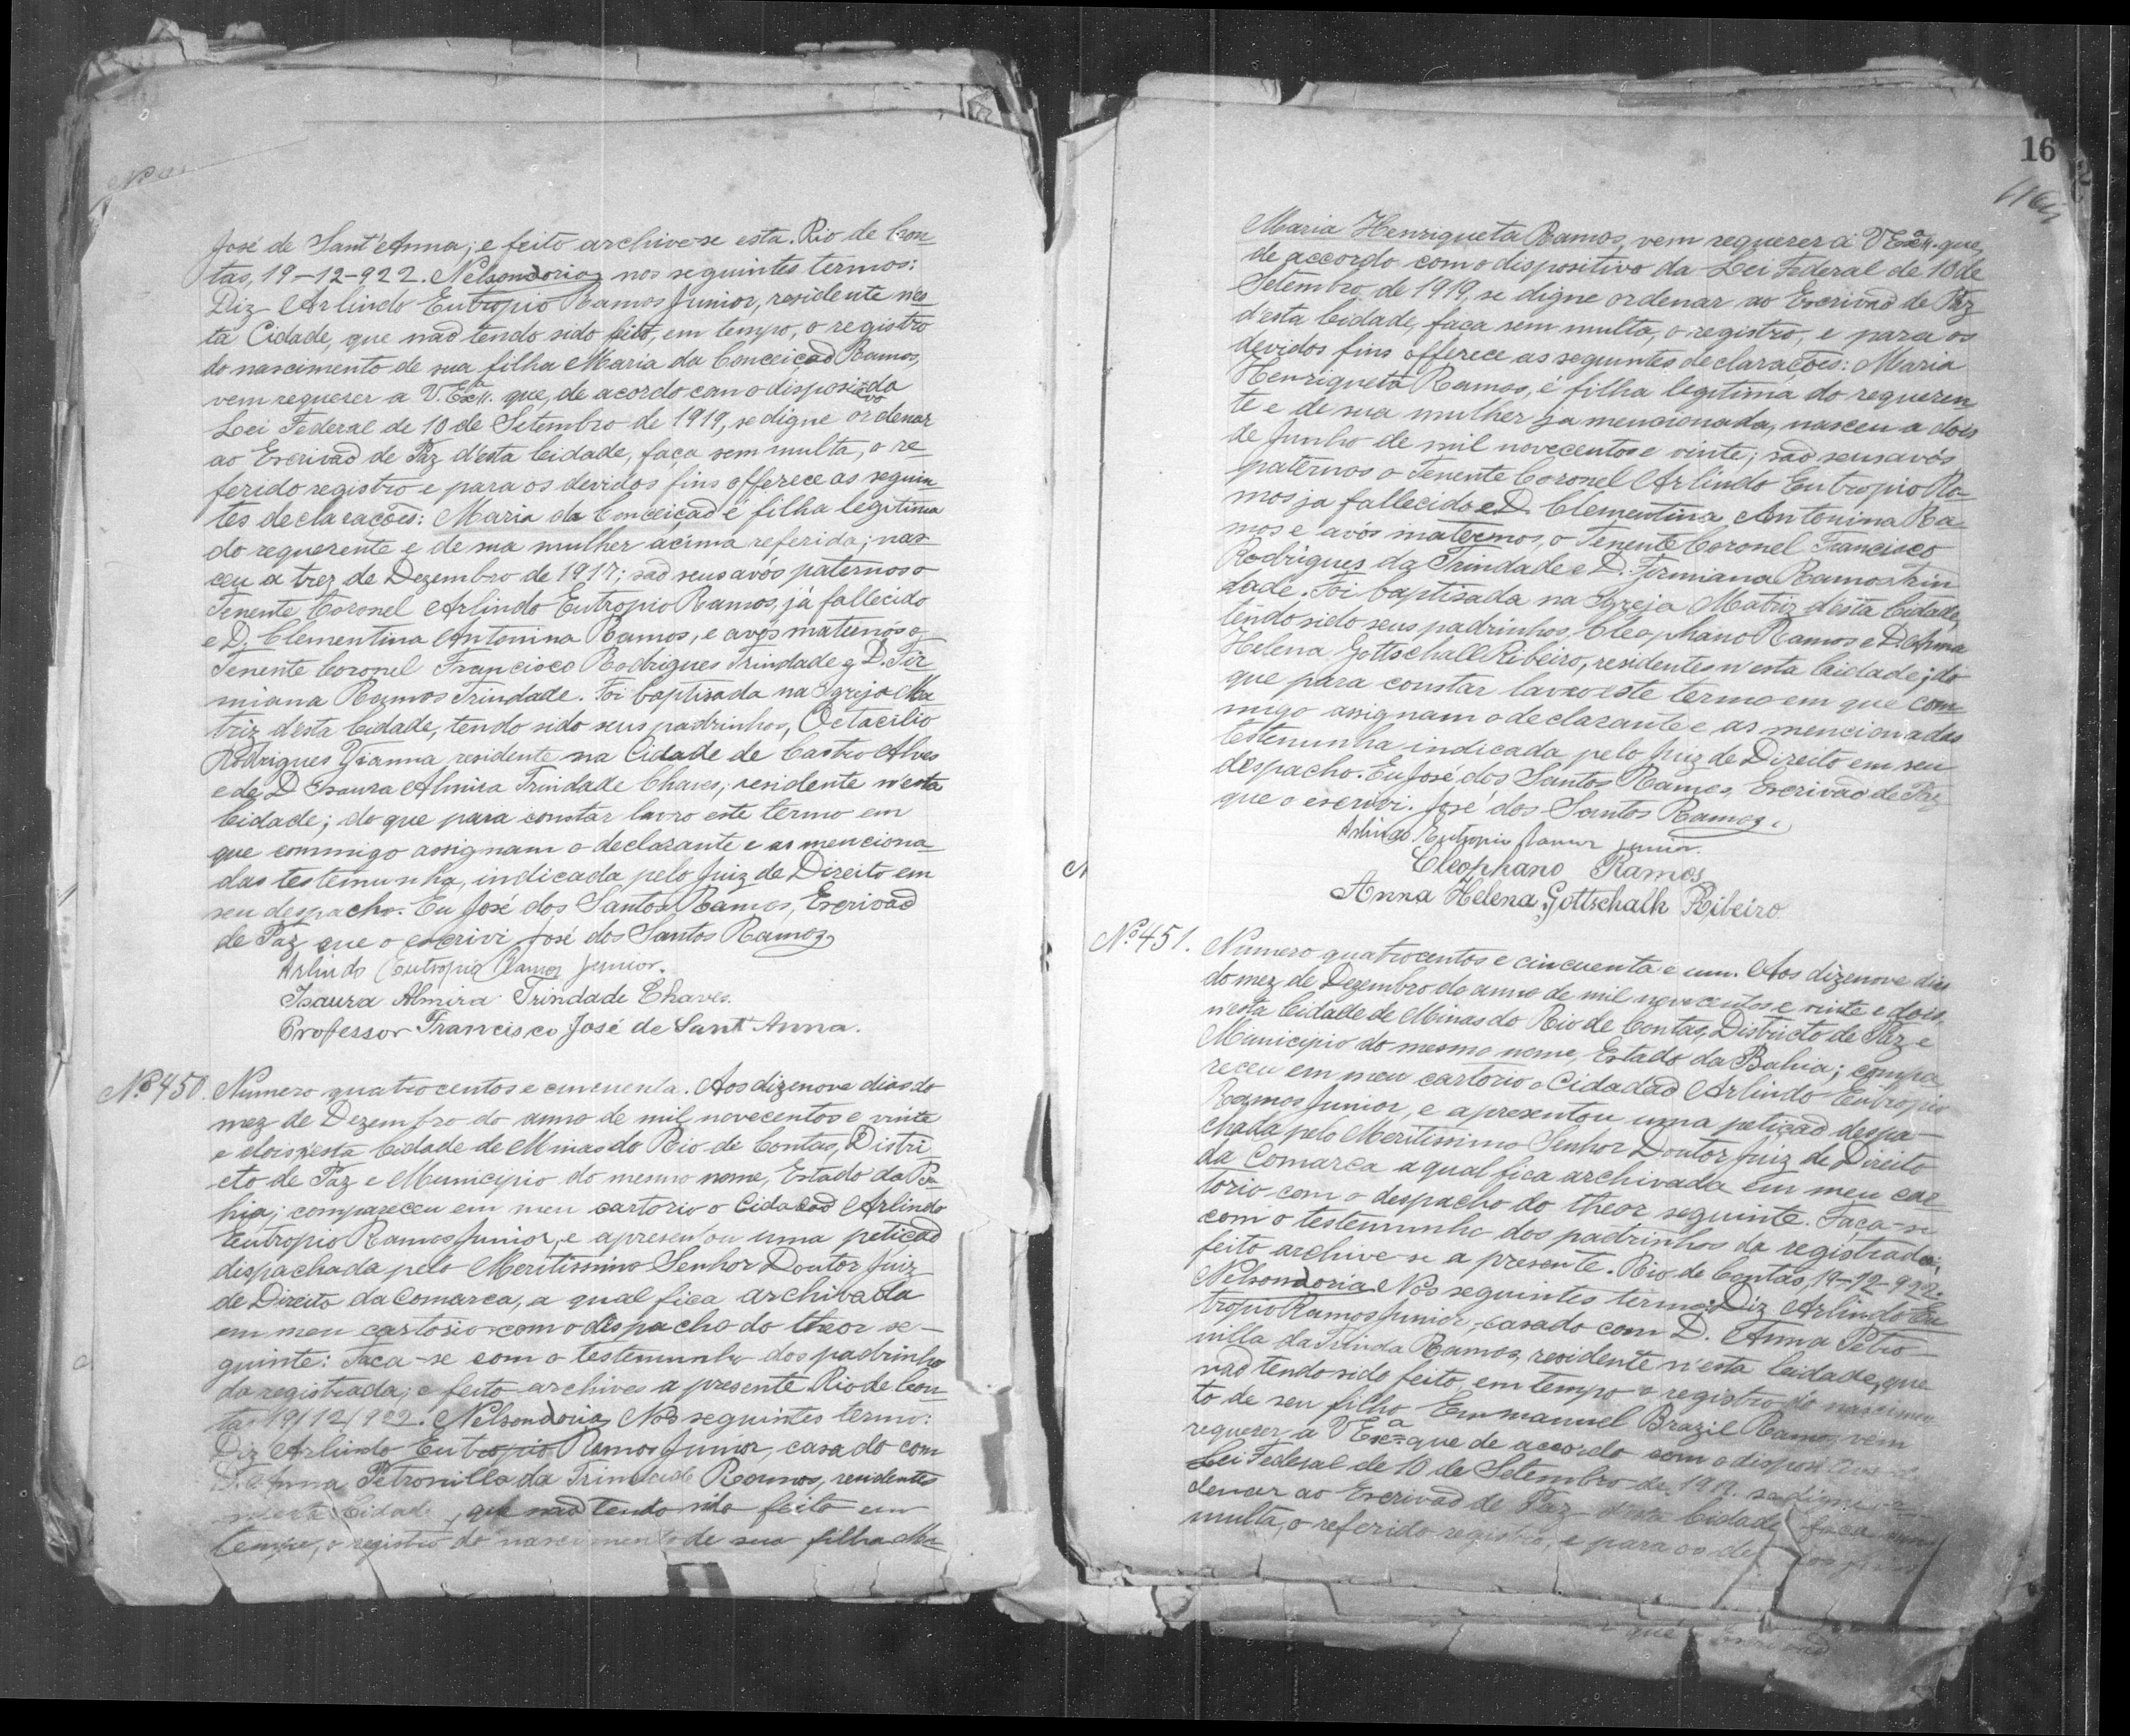 José de Sant'Anna; e feito archive-se esta. Rio de Con-
tas, 19-12-922. Nelson Doria, nos seguintes termos:
Diz Arlindo Eutropio Ramos Junior, residente n'es-
ta Cidade, que não tendo sido feito, em tempo, o registro
do nascimento de sua filha Maria da Conceição Ramos,
vem requerer a V. Exª. que, de acordo com o dispositivo da
Lei Federal de 10 de Setembro de 1919, se digne ordenar
ao Escrivão de Paz d'esta Cidade, faça sem multa, o re-
ferido registro e para os devidos fins offerece as seguin-
tes declarações: Maria da Conceição é filha legitima
do requerente e de sua mulher acima referida; nas-
ceu a trez de Dezembro de 1917; são seus avós paternos o
Tenente Coronel Arlindo Eutropio Ramos, já fallecido
e D. Clementina Antonina Ramos, e avós maternos o
Tenente Coronel Francisco Rodrigues Trindade e D. Fir-
miana Ramos Trindade. Foi baptisada na Igreja Ma-
triz d'esta Cidade, tendo sido seus padrinhos, Octacilio
Rodrigues Vianna, residente na Cidade de Castro Alves
e de D. Isaura Almira Trindade Chaves, residente n'esta
Cidade; do que para constar lavro este termo em
que commigo assignam o declarante e as menciona-
das testemunha, indicada pelo Juiz de Direito em
seu despacho. Eu José dos Santos Ramos, Escrivão
de Paz que o escrivi José dos Santos Ramos,
Arlindo Eutropio Ramos Junior.
Isaura Almira Trindade Chaves.
Professor Francisco José de Sant'Anna.
Nº 450. Numero quatrocentos e cincuenta. Aos dizenove dias do
mez de Dezembro do anno de mil novecentos e vinte
e dois n'esta Cidade de Minas do Rio de Contas, Distri-
cto de Paz e Municipio do mesmo nome, Estado da Ba-
hia; compareceu em meu cartorio o Cidadão Arlindo
Eutropio Ramos Junior, e apresentou uma petição
dispachada pelo Meritissimo Senhor Doutor Juiz
de Direito da Comarca, a qual fica archivada
em meu cartorio com o dispacho do theor se-
guinte: Faca-se com o testemunho dos padrinho
da registrada; e feito archives a presente. Rio de Con-
tas 19/12/922. Nelson Doria, Nos seguintes termo:
Diz Arlindo Eutropio Ramos Junior, casado com
D. Anna Petronilla da Trindade Ramos, residentes
n'esta Cidade, que não tendo sido feito em
tempo, o registro do nascimento de sua filha Ma-
16
Maria Henriqueta Ramos, vem requerer a V Exª. que,
de accordo com o dispositivo da Lei Federal de 10 de
Setembro de 1919, se digne ordenar ao Escrivão de Paz
d'esta Cidade, faca sem multa, o registro, e para os
devidos fins offerece as seguintes declarações: Maria
Henriqueta Ramos, é filha legitima do requeren-
te e de sua mulher ja mencionada, nasceu a dois
de Junho de mil novecentos e vinte; são seus avós
paternos o Tenente Coronel Arlindo Eutropio Ra-
mos ja fallecido e D. Clementina Antonina Ra-
mos e avós maternos, o Tenente Coronel Francisco
Rodrigues da Trindade e D. Firmiana Ramos Trin
dade. Foi baptisada na Igreja Matriz d'esta Cidade,
tendo sido seus padrinhos, Cleophano Ramos e D. Anna
Helena Gottschall Ribeiro, residentes n'esta Cidade; do
que para constar lavro este termo em que com-
migo assignam o declarante e as mencionadas
testemunha indicada pelo Juiz de Direito em seu
despacho. Eu José dos Santos Ramos, Escrivão de Paz
que o escrivi. José dos Santos Ramos.
Arlindo Eutropio Ramos Junior.
Cleophano Ramos
Anna Helena Gottschalk Ribeiro
Nº 451. Numero quatrocentos e cincuenta e um. Aos dizenove dias
do mez de Dezembro do anno de mil novecentos e vinte e dois,
n'esta Cidade de Minas do Rio de Contas, Districto de Paz e
Municipio do mesmo nome, Estado da Bahia; compa-
receu em meu cartorio o Cidadão Arlindo Eutropio
Ramos Junior, e apresentou uma petição despa-
chada pelo Meritissimo Senhor Doutor Juiz de Direito
da Comarca a qual fica archivada em meu car-
torio com o despacho do theor seguinte. Faça-se
com o testemunho dos padrinhos da registrada;
feito archive-se a presente. Rio de Contas, 19-12-922.
Nelson Doria. Nos seguintes termos: Diz Arlindo Eu-
tropio Ramos Junior, casado com D. Anna Petro-
nilla da Trinda Ramos, residente n'esta Cidade, que
não tendo sido feito em tempo o registro do nascimen
to de seu filho Emmanuel Brazil Ramos, vem
requerer a V Exª que de accordo com o dispositivo
Lei Federal de 10 de Setembro de 1919. se digne or-
denar ao Escrivão de Paz d'esta Cidade, faça sem
multa, o referido registro, e para os devidos fins